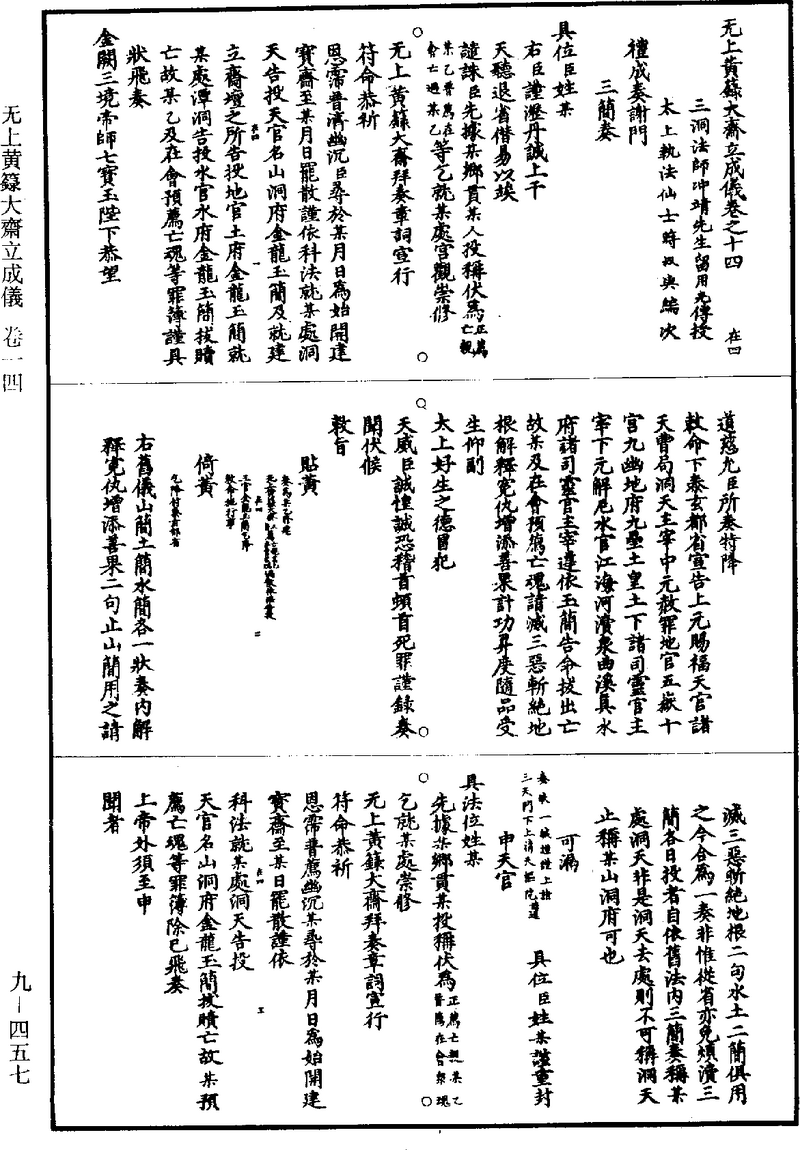 无上黃籙大齋立成儀卷之十四 在四
三洞法師冲靖先生留用光傳授
太上執法仙士蔣叔輿編次
禮成奏謝門
三簡奏
具位臣姓某
右臣謹瀝丹誠上干
天聽退省僭易以竢
譴誅臣先據某鄉貫某人投稱伏爲
等乞就某處宮觀崇修
无上黃籙大齋拜奏章詞宣行
符命恭祈
恩霈普濟幽沉臣尋於某月日爲始開建
寶齋至某月日罷散謹依科法就某處洞
天告投天官名山洞府金龍玉簡及就建
立齋壇之所告投地官土府金龍玉簡就
某處潭洞告投水官水府金龍玉簡拔贖
亡故某乙及在會預薦亡魂等罪簿謹具
狀飛奏
金闕三境帝師七寶玉陛下恭望
道慈允臣所奏特降
敕命下泰玄都省宣告上元賜福天官諸
天曹局洞天主宰中元赦罪地官五嶽十
宮九幽地府九壘土皇土下諸司靈官主
宰下元解厄水官江海河瀆泉曲溪真水
府諸司靈官主宰遵依玉簡告命拔出亡
故某及在會預薦亡魂請滅三惡斬絕地
根解釋冤仇增添善果計功昇度隨品受
生仰副
太上好生之德冒犯
天威臣誠惶誠恐稽首頓首死罪謹錄奏
聞伏候
敕旨
貼黃
倚黃
右舊儀山簡土簡水簡各一狀奏內解
釋冤仇增添善果二句止山簡用之請
滅三惡斬絕地根二句水土二簡俱用
之今合爲一奏非惟從省亦免煩瀆三
簡各日投者自依舊法內三簡奏稱某
處洞天非是洞天去處則不可稱洞天
止稱某山洞府可也
可漏
具位臣姓某謹重封
申天官
具法位姓某
先據某鄉貫某投稱伏爲
乞就某處崇修
无上黃籙大齋拜奏章詞宣行
符命恭祈
恩霈普薦幽沉某尋於某月日爲始開建
寶齋至某日罷散謹依
科法就某處洞天告投
天官名山洞府金龍玉簡拔贖亡故某預
薦亡魂等罪簿除已飛奏
上帝外須至申
聞者
无上黄籙大齋立成儀 卷一四
九－四五七